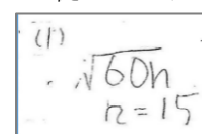 (1)
√60n
n=15